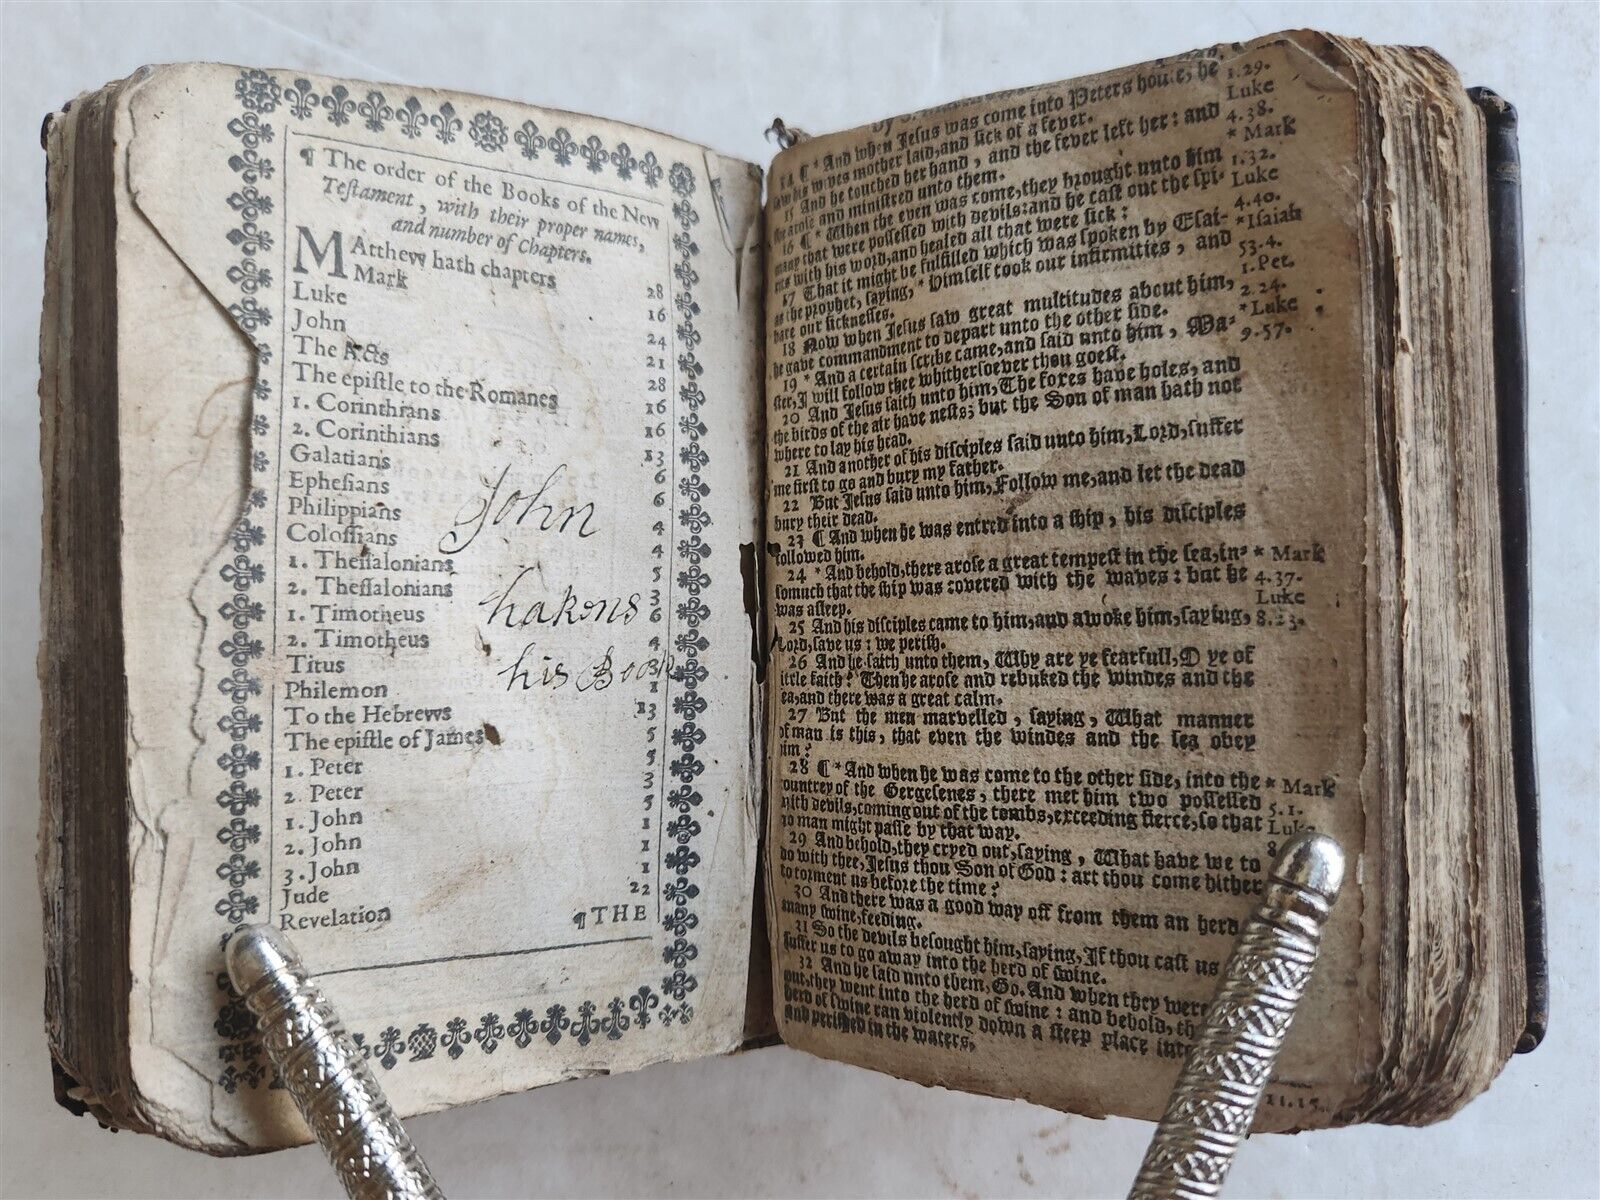 ¶ The order of the Books of the New
Teſtament, with their proper names,
and number of Chapters.
MAtthew hath chapters 28
Mark 16
Luke 24
John 21
The Acts 28
The epiſtle to the Romanes 16
1. Corinthians 16
2. Corinthians 13
Galatians 6
Epheſians 6
Philippians 4
Coloſſians 4
1. Theſſalonians 5
2. Theſſalonians 3
1. Timotheus 6
2. Timotheus 4
Titus 3
Philemon 1
To the Hebrews 13
The epiſtle of James 5
1. Peter 5
2 Peter 3
1. John 5
2. John 1
3. John 1
Jude 1
Revelation 22
¶ THE
John
hakons
his Book
14 ¶ * And when Jeſus was come into Peters houſe, he
ſaw his wives mother laid, and ſick of a fever.
15 And he touched her hand, and the fever left her: and
ſhe aroſe and miniſtred unto them.
16 ¶ * When the even was come, they brought unto him
many that were poſſeſſed with devils: and he caſt out the ſpi-
rits with his word, and healed all that were ſick:
17 That it might be fulfilled which was ſpoken by Eſai-
as the prophet, ſaying, * Himſelf took our infirmities, and
bare our ſickneſſes.
18 Now when Jeſus ſaw great multitudes about him,
he gave commandment to depart unto the other ſide.
19 * And a certain ſcribe came, and ſaid unto him, Ma-
ſter, I will follow thee whitherſoever thou goeſt.
20 And Jeſus ſaith unto him, The foxes have holes, and
the birds of the air have neſts; but the Son of man hath not
where to lay his head.
21 And another of his diſciples ſaid unto him, Lord, ſuffer
me firſt to go and bury my father.
22 But Jeſus ſaid unto him, Follow me, and let the dead
bury their dead.
23 ¶ And when he was entred into a ſhip, his diſciples
followed him.
24 * And behold, there aroſe a great tempeſt in the ſea, in-
ſomuch that the ſhip was covered with the waves: but he
was aſleep.
25 And his diſciples came to him, and awoke him, ſaying,
Lord, ſave us: we periſh.
26 And he ſaith unto them, Why are ye fearfull, O ye of
little faith? Then he aroſe and rebuked the windes and the
ſea, and there was a great calm.
27 But the men marvelled, ſaying, What manner
of man is this, that even the windes and the ſea obey
him?
28 ¶ * And when he was come to the other ſide, into the
countrey of the Gergeſenes, there met him two poſſeſſed
with devils, coming out of the tombs, exceeding fierce, ſo that
no man might paſſe by that way.
29 And behold, they cryed out, ſaying, What have we to
do with thee, Jeſus thou Son of God: art thou come hither
to torment us before the time?
30 And there was a good way off from them an herd
many ſwine, feeding.
31 So the devils beſought him, ſaying, If thou caſt us
ſuffer us to go away into the herd of ſwine.
32 And he ſaid unto them, Go. And when they were
out, they went into the herd of ſwine: and behold, th
herd of ſwine ran violently down a ſteep place into
and periſhed in the waters.
1.29.
Luke
4.38.
* Mark
1.32.
Luke
4.40.
* Iſaiah
53.4.
1. Pet.
2.24.
* Luke
9.57.
* Mark
4.37.
Luke
8.23.
* Mark
5.1.
Luke
8
11.15.